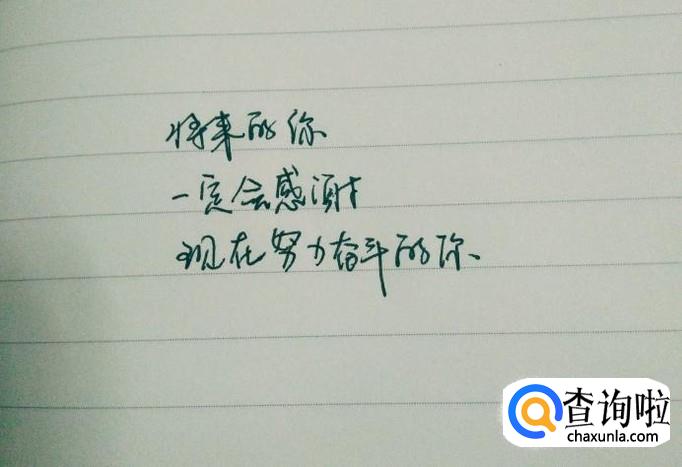 将来的你
一定会感谢
现在努力奋斗的你、
查询啦
chaxunla.com